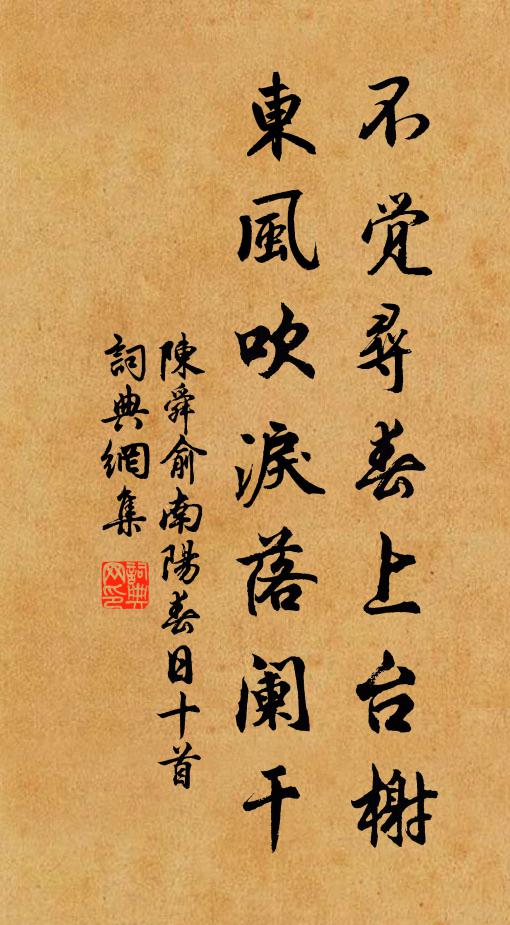 不觉尋春上台榭
東風吹淚落闌干
陳舜俞南陽春日十首
詞典網集
詞典
网印